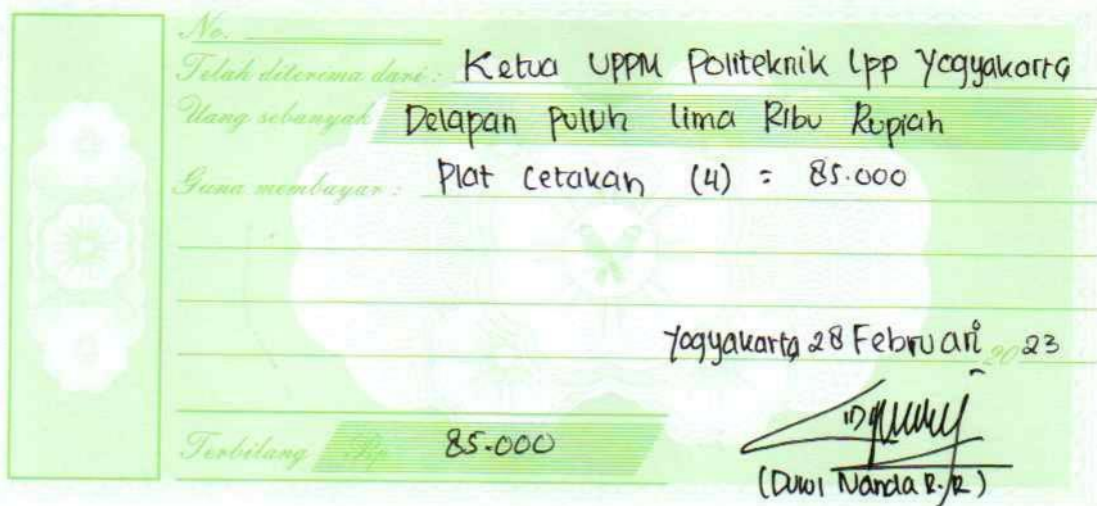 No.
Telah diterima dari : Ketua UPPM Politeknik Lpp Yogyakarta
Uang sebanyak Delapan Puluh Lima Ribu Rupiah
Guna membayar : Plat Cetakan (4) = 85.000
Yogyakarta 28 Februari 2023
Terbilang Rp 85.000
(Duwi Nanda R.R)